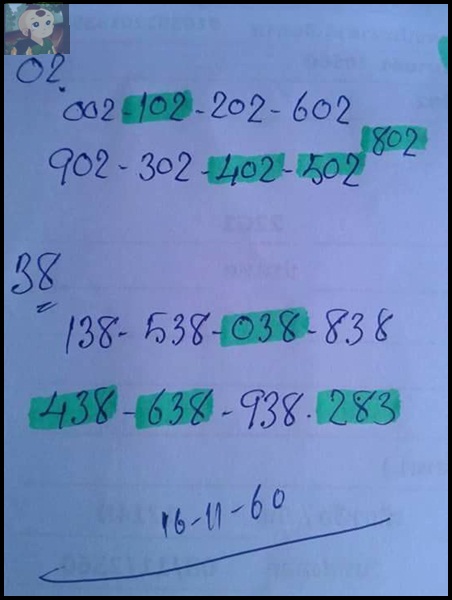 02
002-102-202-602
802
902-302-402-502
38
138-538-038-838
438-638-938.283
16-11-60